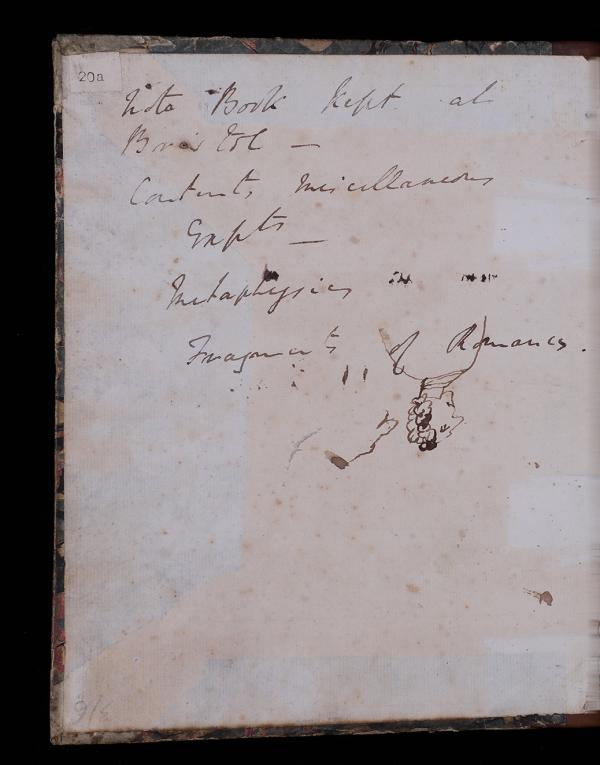 20a
Note Book Kept at
Bristol —
Contents, Miscellaneous
Expts —
Metaphysics
Fragments of Romances.